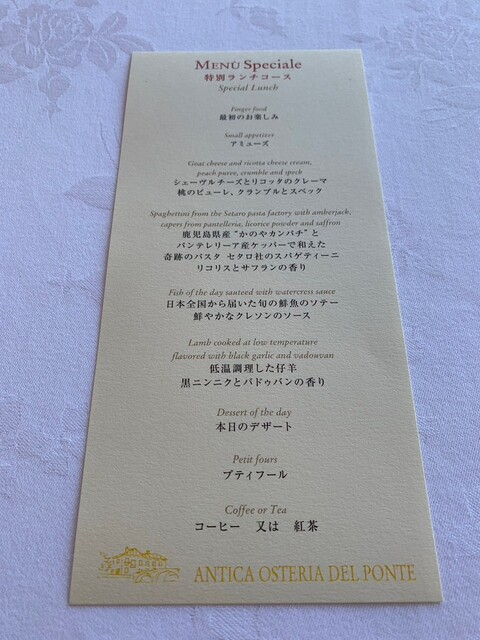 MENÙ Speciale
特別ランチコース
Special Lunch
Finger food
最初のお楽しみ
Small appetizer
アミューズ
Goat cheese and ricotta cheese cream,
peach puree, crumble and speck
シェーヴルチーズとリコッタのクレーマ
桃のピューレ、クランブルとスペック
Spaghettini from the Setaro pasta factory with amberjack,
capers from pantelleria, licorice powder and saffron
鹿児島県産“かのやカンパチ”と
パンテレリーア産ケッパーで和えた
奇跡のパスタ セタロ社のスパゲティーニ
リコリスとサフランの香り
Fish of the day sauteed with watercress sauce
日本全国から届いた旬の鮮魚のソテー
鮮やかなクレソンのソース
Lamb cooked at low temperature
flavored with black garlic and vadouvan
低温調理した仔羊
黒ニンニクとバドゥバンの香り
Dessert of the day
本日のデザート
Petit fours
プティフール
Coffee or Tea
コーヒー 又は 紅茶
ANTICA OSTERIA DEL PONTE